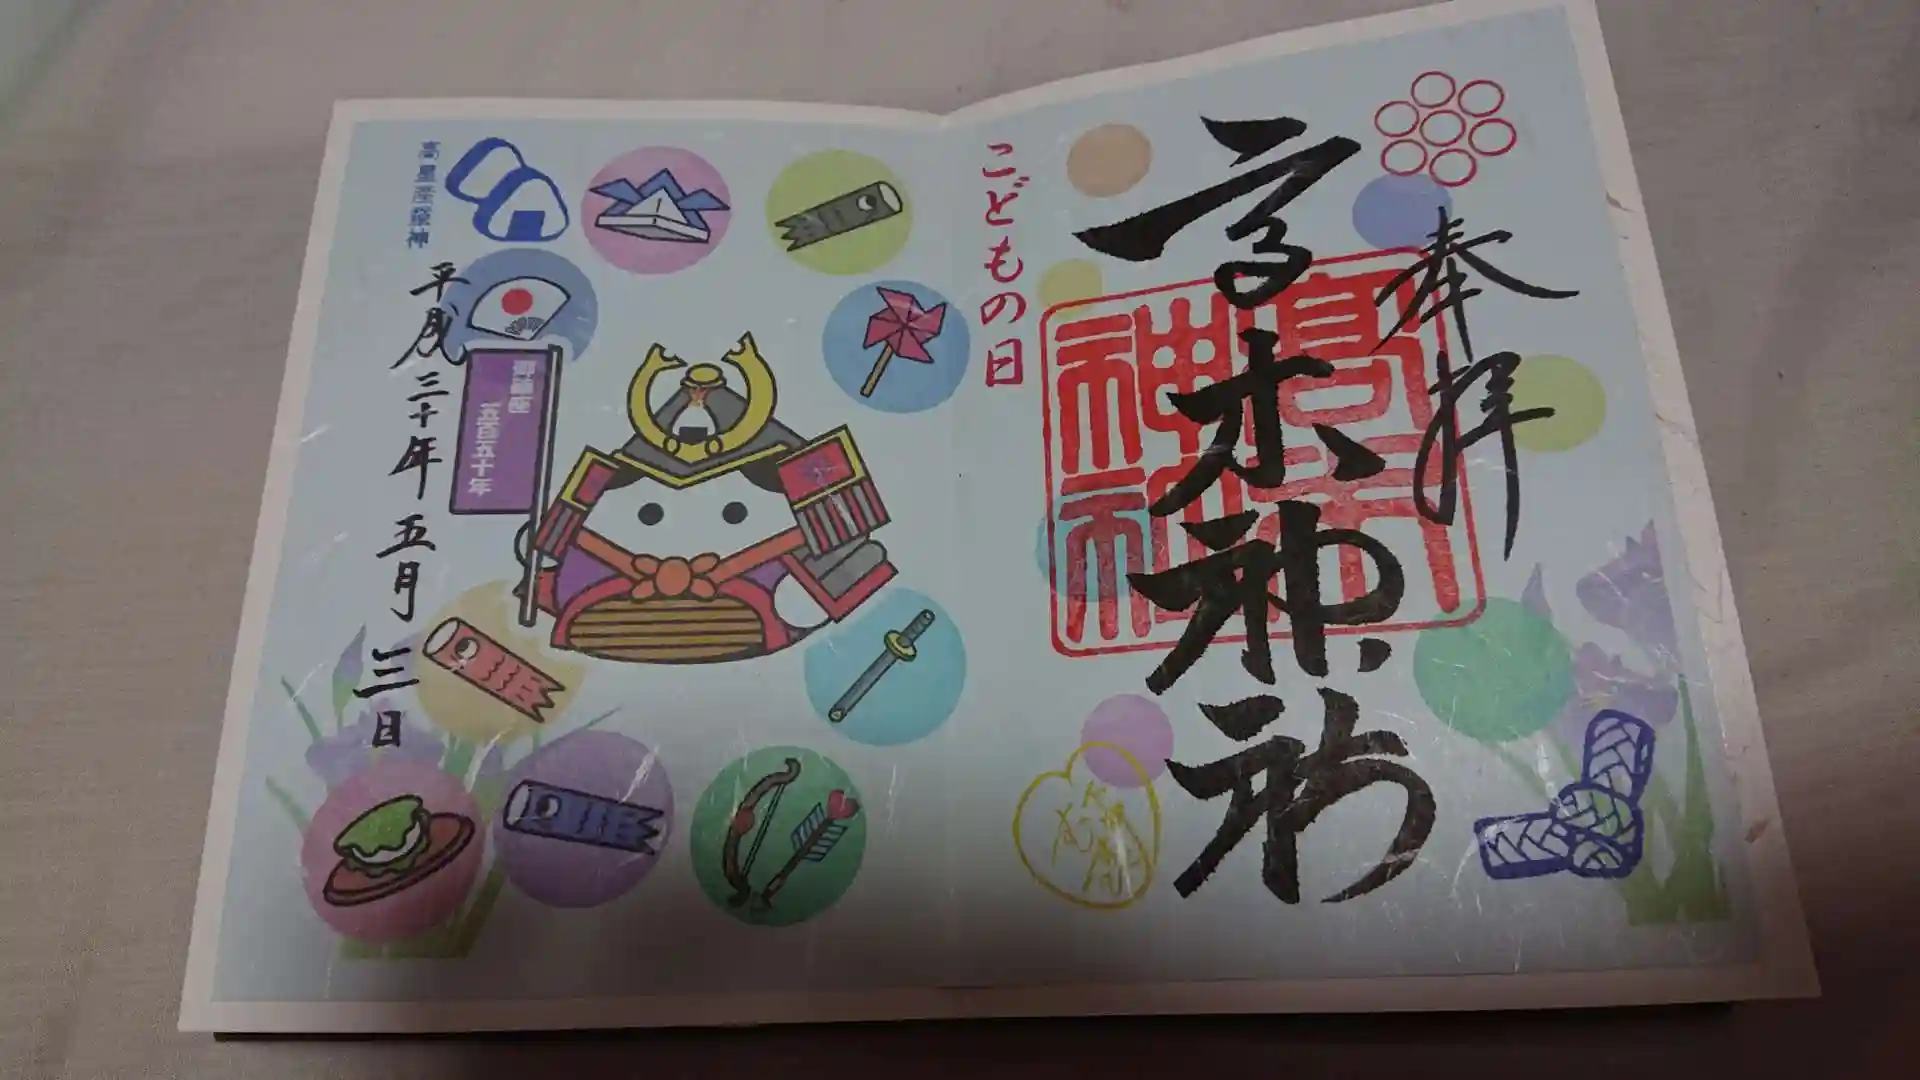 奉拝
高木神社
高木
神社
こどもの日
御鎮座
五百五十年
高皇産霊神
平成三十年五月三日